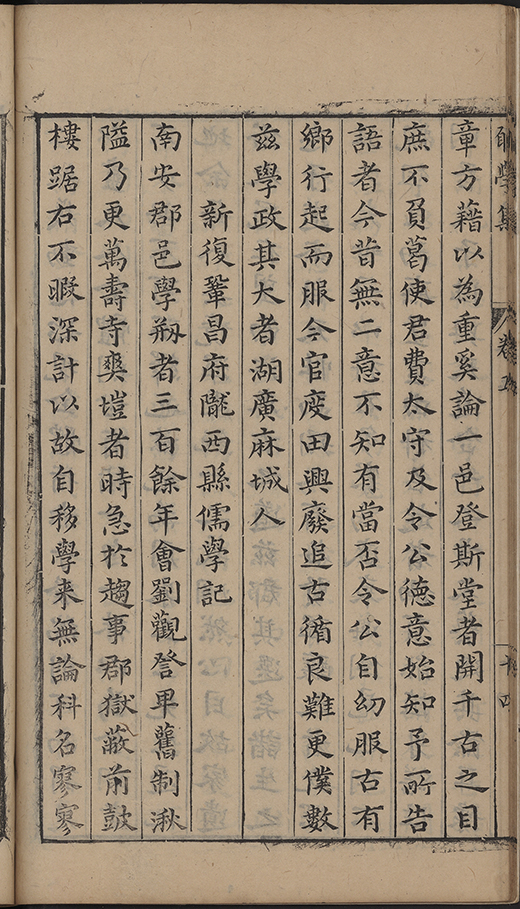 學集 卷五 十四
章方藉以為重奚論一邑登斯堂者開千古之目
庶不負葛使君費太守及令公德意始知予所告
語者今昔無二意不知有當否令公自幼服古有
鄉行起而服今官度田興廢追古循良難更僕數
茲學政其大者湖廣麻城人
新復鞏昌府隴西縣儒學記
南安郡邑學剏者三百餘年會劉觀詧卑舊制湫
隘乃更萬壽寺爽塏者時急於趨事郡獄蔽前鼓
樓踞右不暇深計以故自移學来無論科名寥寥